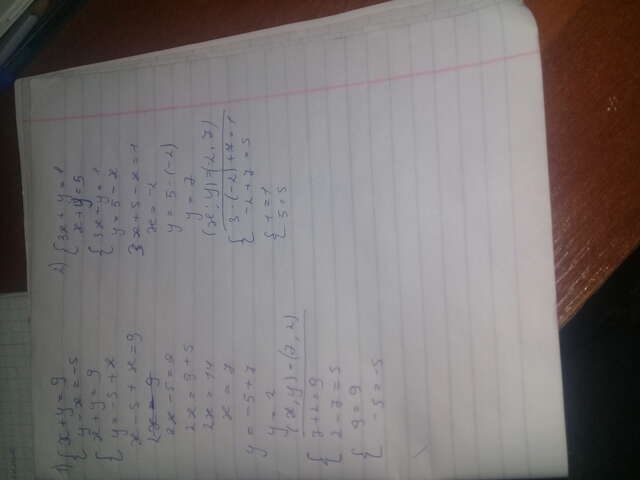 1) { x + y = 9
y - x = -5
{ x + y = 9
y = -5 + x
x - 5 + x = 9
2x = 9
2x - 5 = 9
2x = 9 + 5
2x = 14
x = 7
y = -5 + 7
y = 2
(x, y) = (7, 2)
{ 7 + 2 = 9
2 - 7 = 5
{ 9 = 9
-5 = -5
2) { 3x + y = 1
x + y = 5
{ 3x + y = 1
y = 5 - x
3x + 5 - x = 1
x = -2
y = 5 - (-2)
y = 7
(x; y) = (-2, 7)
{ 3 - (-2) + 7 = 1
-2 + 7 = 5
{ 1 = 1
5 = 5